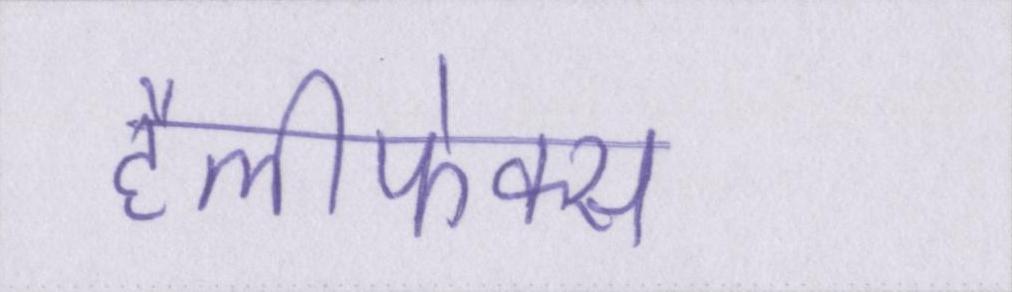 हैलीफेक्स